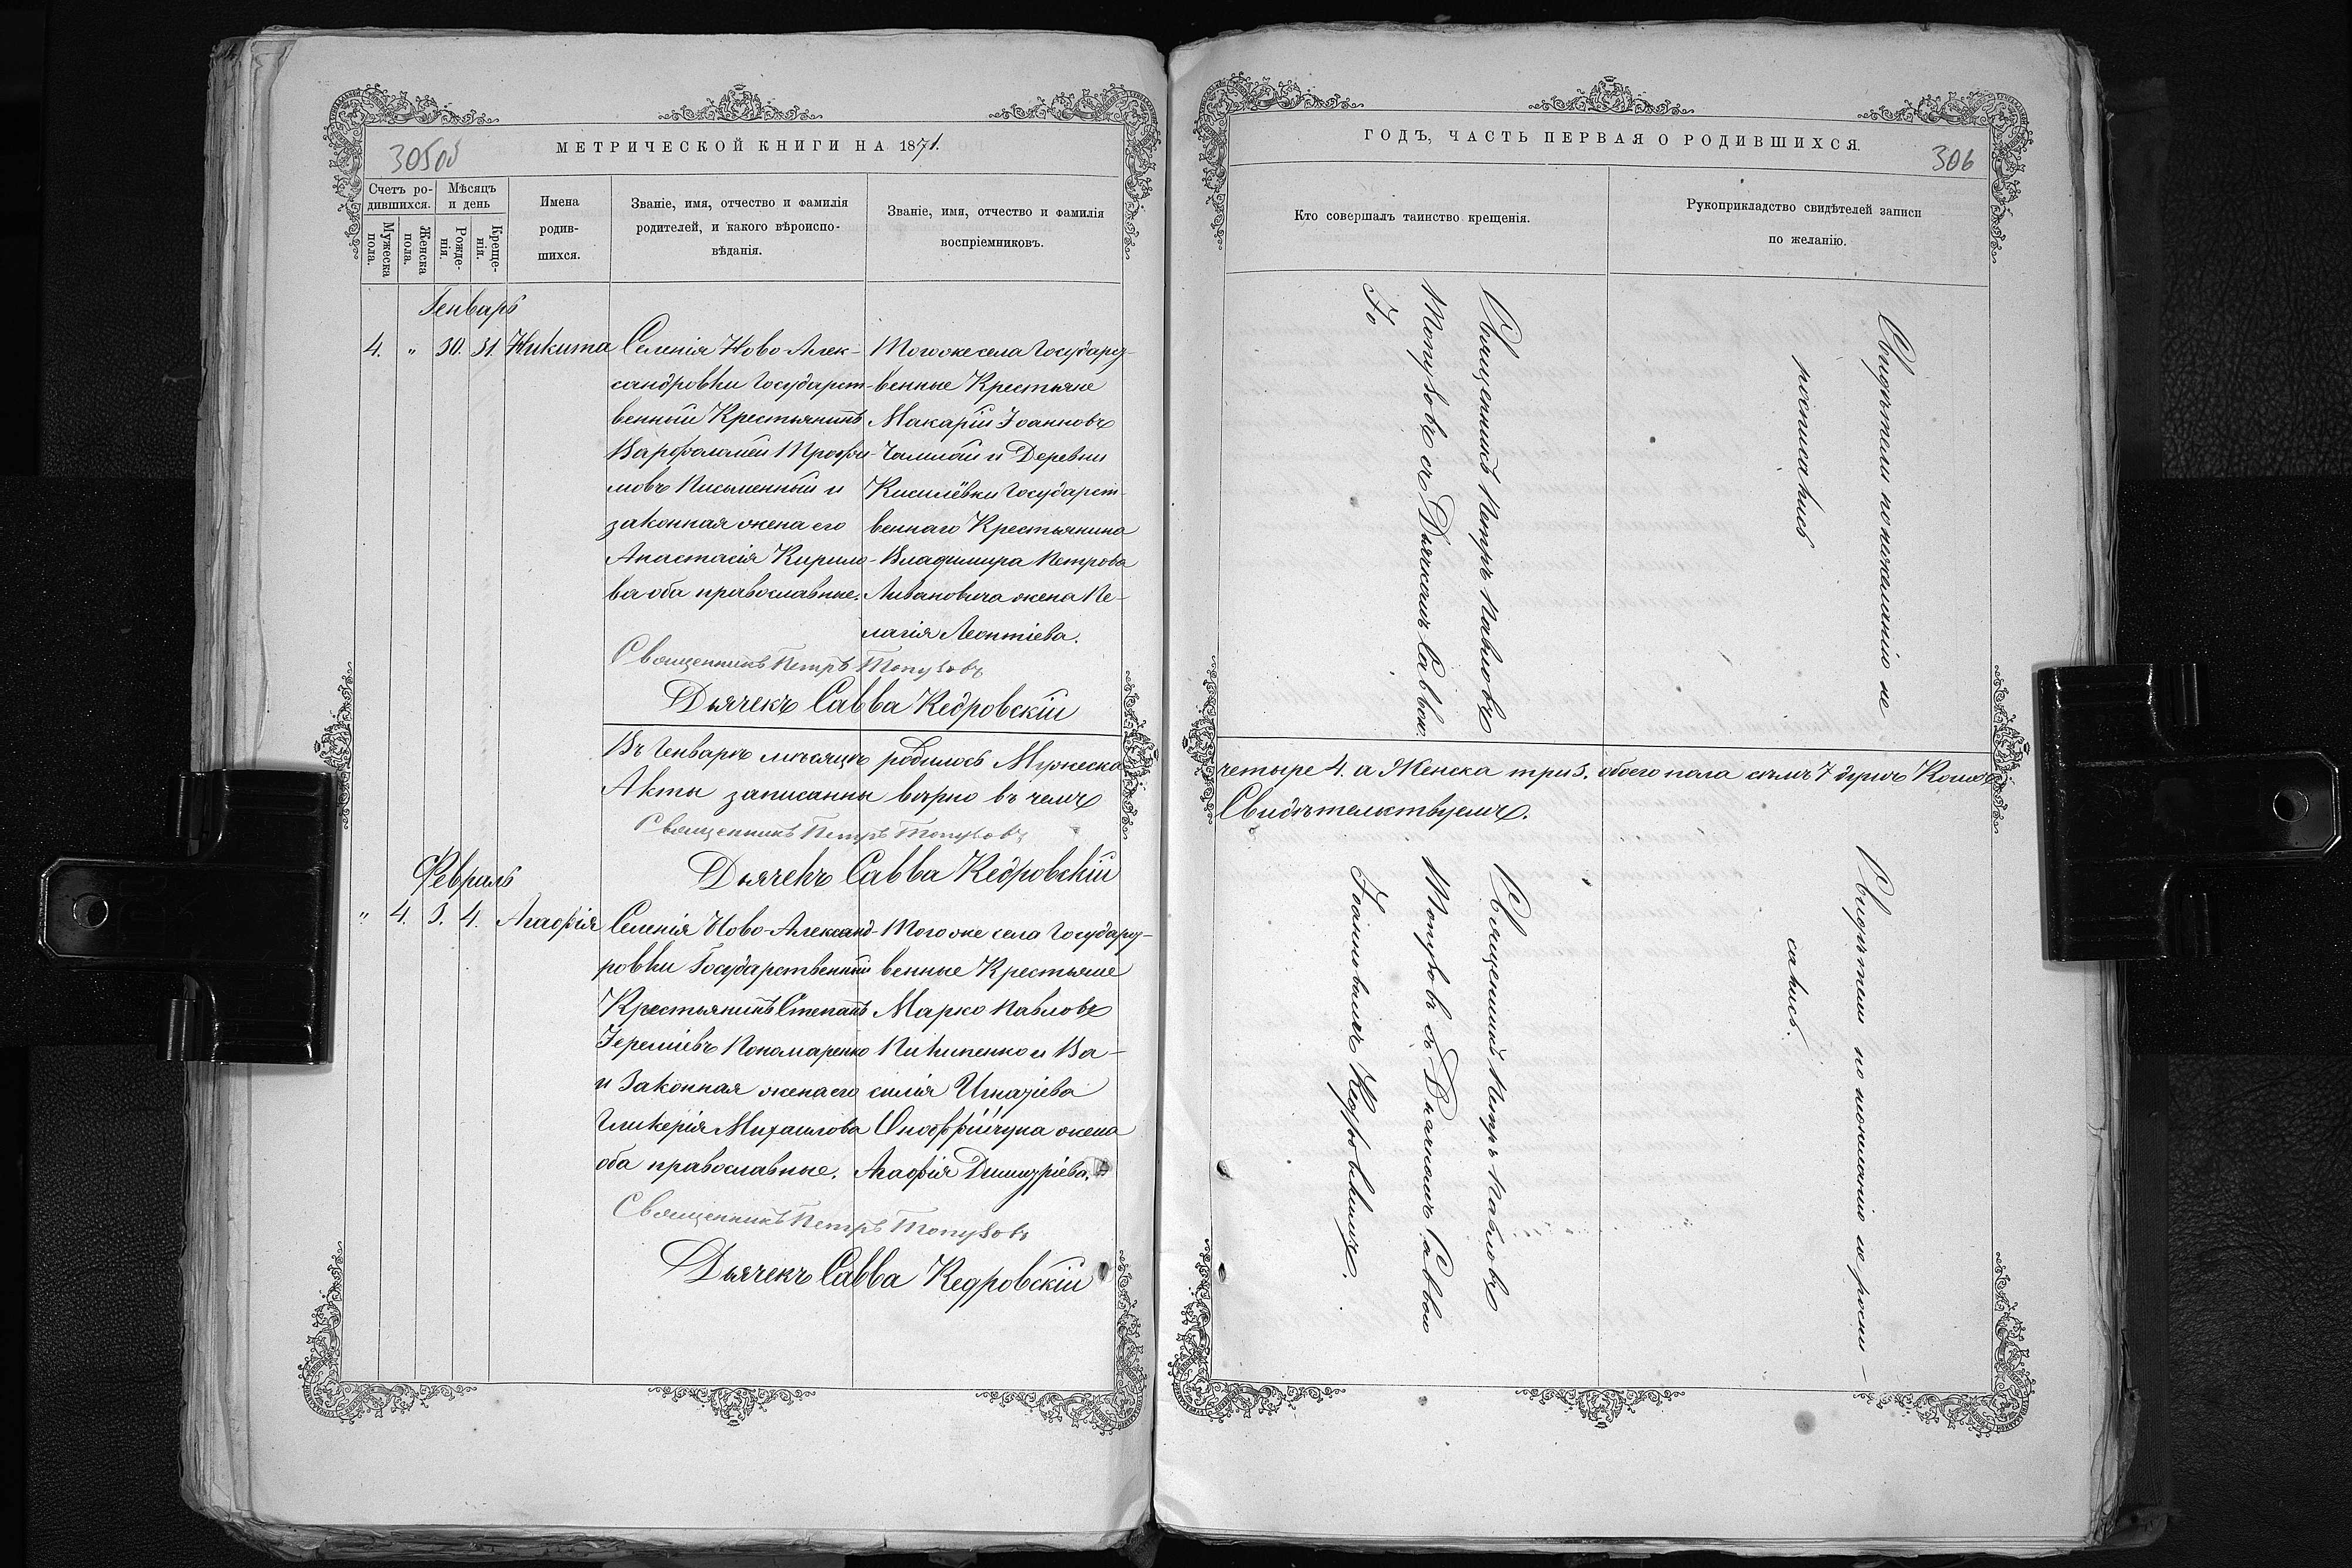 МЕТРИЧЕСКОЙ КНИГИ НА 1871.
305об
Счетъ ро-
дившихся.
Мѣсяцъ
и день
Мужеска
пола.
Женска
пола.
Рожде-
нія.
Креще-
нія.
Имена
родив-
шихся.
Званіе, имя, отчество и фамилія
родителей, и какого вѣроиспо-
вѣданія.
Званіе, имя, отчество и фамилія
воспріемниковъ.
Генварь
4. " 30. 31. Никита
Селенія Ново Алек-
сандровки Государст-
венный Крестьянинъ
Варфаламей Трофи-
мовъ Письменный и
законная жена его
Анастасія Кирило-
ва оба православные.
Тогоже села Государ-
венные Крестьяне
Макарій Іоанновъ
и Деревни
Кисилёвки Государст-
веннаго Крестьянина
Владимира Петрова
Ливановича жена Пе-
лагія Леонтіева.
Священникъ Петръ Топузовъ
Дьячекъ Савва Кедровскій
Въ Генварѣ мѣсяцѣ родилось Мужеска
Акты записанны вѣрно въ чемъ
Священникъ Петръ Топузовъ
Дьячекъ Савва Кедровскій
Февраль
" 4. 3. 4. Агафія
Селенія Ново-Александ-
ровки Государственный
Крестьянинъ Степанъ
Іереміевъ Пономаренко
и Законная жена его
Гликерія Михаилова
оба православные.
Тогоже села Государ-
венные Крестьяне
Марко Павловъ
Пикипенко и Ва-
силія Игнатіева
жена
Агафія Димитріева.
Священникъ Петръ Топузовъ
Дьячекъ Савва Кедровскій
ГОДЪ, ЧАСТЬ ПЕРВАЯ О РОДИВШИХСЯ.
306
Кто совершалъ таинство крещенія.
Рукоприкладство свидѣтелей записи
по желанію.
Священникъ Петръ Павловъ
Топузовъ съ Дьячкомъ Саввою.
Іо
Свидѣтели по нежеланію не
росписались
четыре 4. а Женска три 3. обоего пола семь 7 душъ
Свидѣтельствуемъ.
Священникъ Петръ Павловъ
Топузовъ съ Дьячкомъ Саввою
Іоанновымъ Кедровскимъ.
Свидѣтели по нежеланію не роспи-
сались.